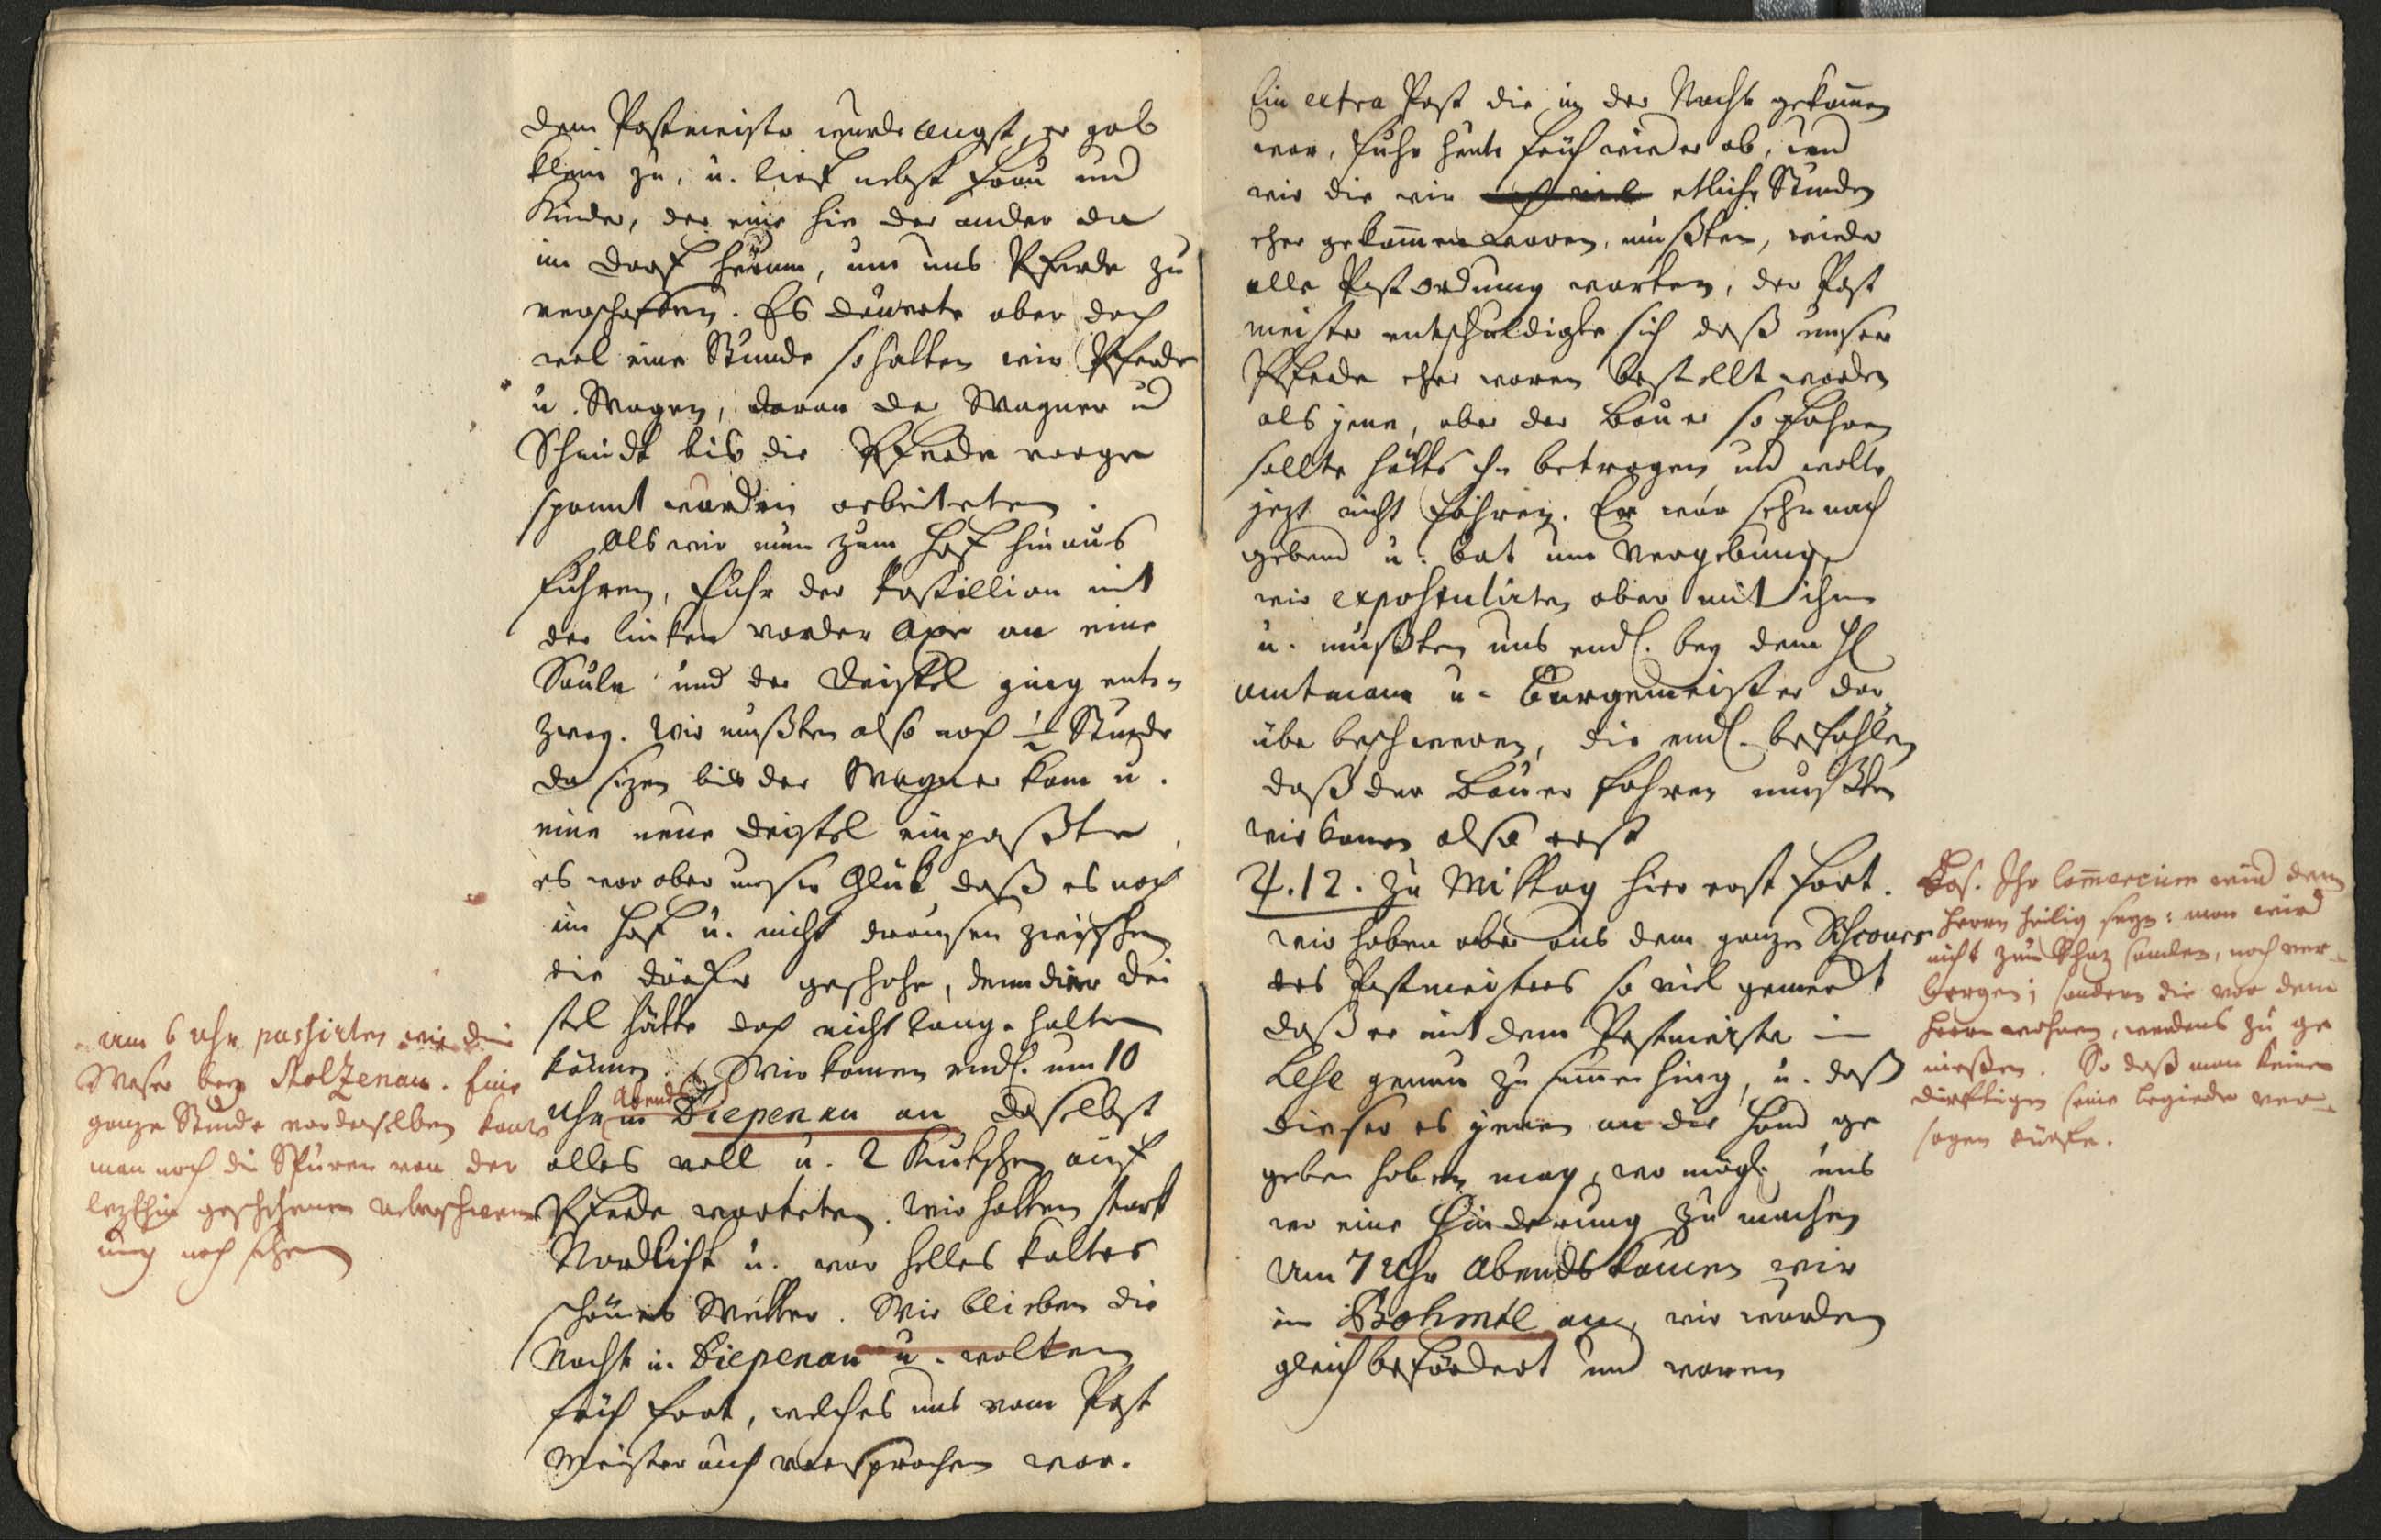 dem Postmeister wurde angst, er gab
klein zu, u. lief nebst Frau und
Kinder, der eine hie der ander da
im Dorf herum, um uns Pferde zu
verschaffen. Es dauerte aber doch
wol eine Stunde so hatten wir Pferde
u. Wagen, daran der Wagner u
Schmidt bis die Pferde vorge
spannt wurden arbeiteten.
Als wir nun zum Hof hinaus
fuhren, fuhr der Postillion mit
der linken vorder Axe an eine
Säule und der Deistel ging ent-
zwey. Wir mußten also noch ½ Stunde
da sizen bis der Wagner kam u.
eine neue Deistel einpaßte,
es war aber unser Glük daß es noch
im Hof u. nicht draussen zwischen
die Dörfer geschahe, denn die Dei
stel hätte doch nicht lange halten
können. Wir kamen endl. um 10
Uhr Abends in Diepenau an daselbst
alles voll u. 2 Kutschen auf
Pferde warteten. Wir hatten stark
Nordlicht u. war helles kaltes
schönes Wetter. Wir blieben die
Nacht in Diepenau u. wolten
früh fort, welches uns vom Post
Meister auch versprochen war.
Um 6 Uhr passirten wir die
Weser bey Stolzenau. Eine
ganze Stunde vor derselben kante
man noch die Spuren von der
lezthin geschehenen Ueberschwem
ung noch sehen
Ein extra Post die in der Nacht gekommen
war, fuhr heute früh wieder ab, und
wir die wir etliche Stunden
eher gekommen waren, mußten, wieder
alle Postordnung warten, der Post
meister entschuldigte sich daß unser
Pferde eher waren bestellt worden
als jene, aber der Bauer so fahren
sollte hätts ihn betrogen und wolte
jezt nicht fahren. Er war sehr nach
gebend u. bat um Vergebung
wir expostulirten aber mit ihm
u. mußten uns endl. bey dem H
Amtmann u. Burgemeister dar
über beschweren, die endl. befohlen
daß der Bauer fahren mußte
wir kamen also erst
♃. 12. zu Mittag hier erst fort.
wir haben aber aus dem ganzen Discours
des Postmeisters so viel gemerckt
daß er mit dem Postmeister in
Lese genau zusammen hing, u. daß
dieser es jenen an die Hand ge
geben haben mag, wo mögl. uns
wo eine Hinderung zu machen
Um 7 Uhr Abends kamen wir
in Bohmte an, wir wurden
gleich befördert und waren
Los. Ihr Commercium wird dem
Herrn heilig seyn: man wird
nicht zum Schaz samlen, noch ver-
bergen; sondern die vor dem
Herrn wohnen, werdens zu ge
niessen. So daß man keinen
dürftigen seine Begierde ver-
sagen dürfte.